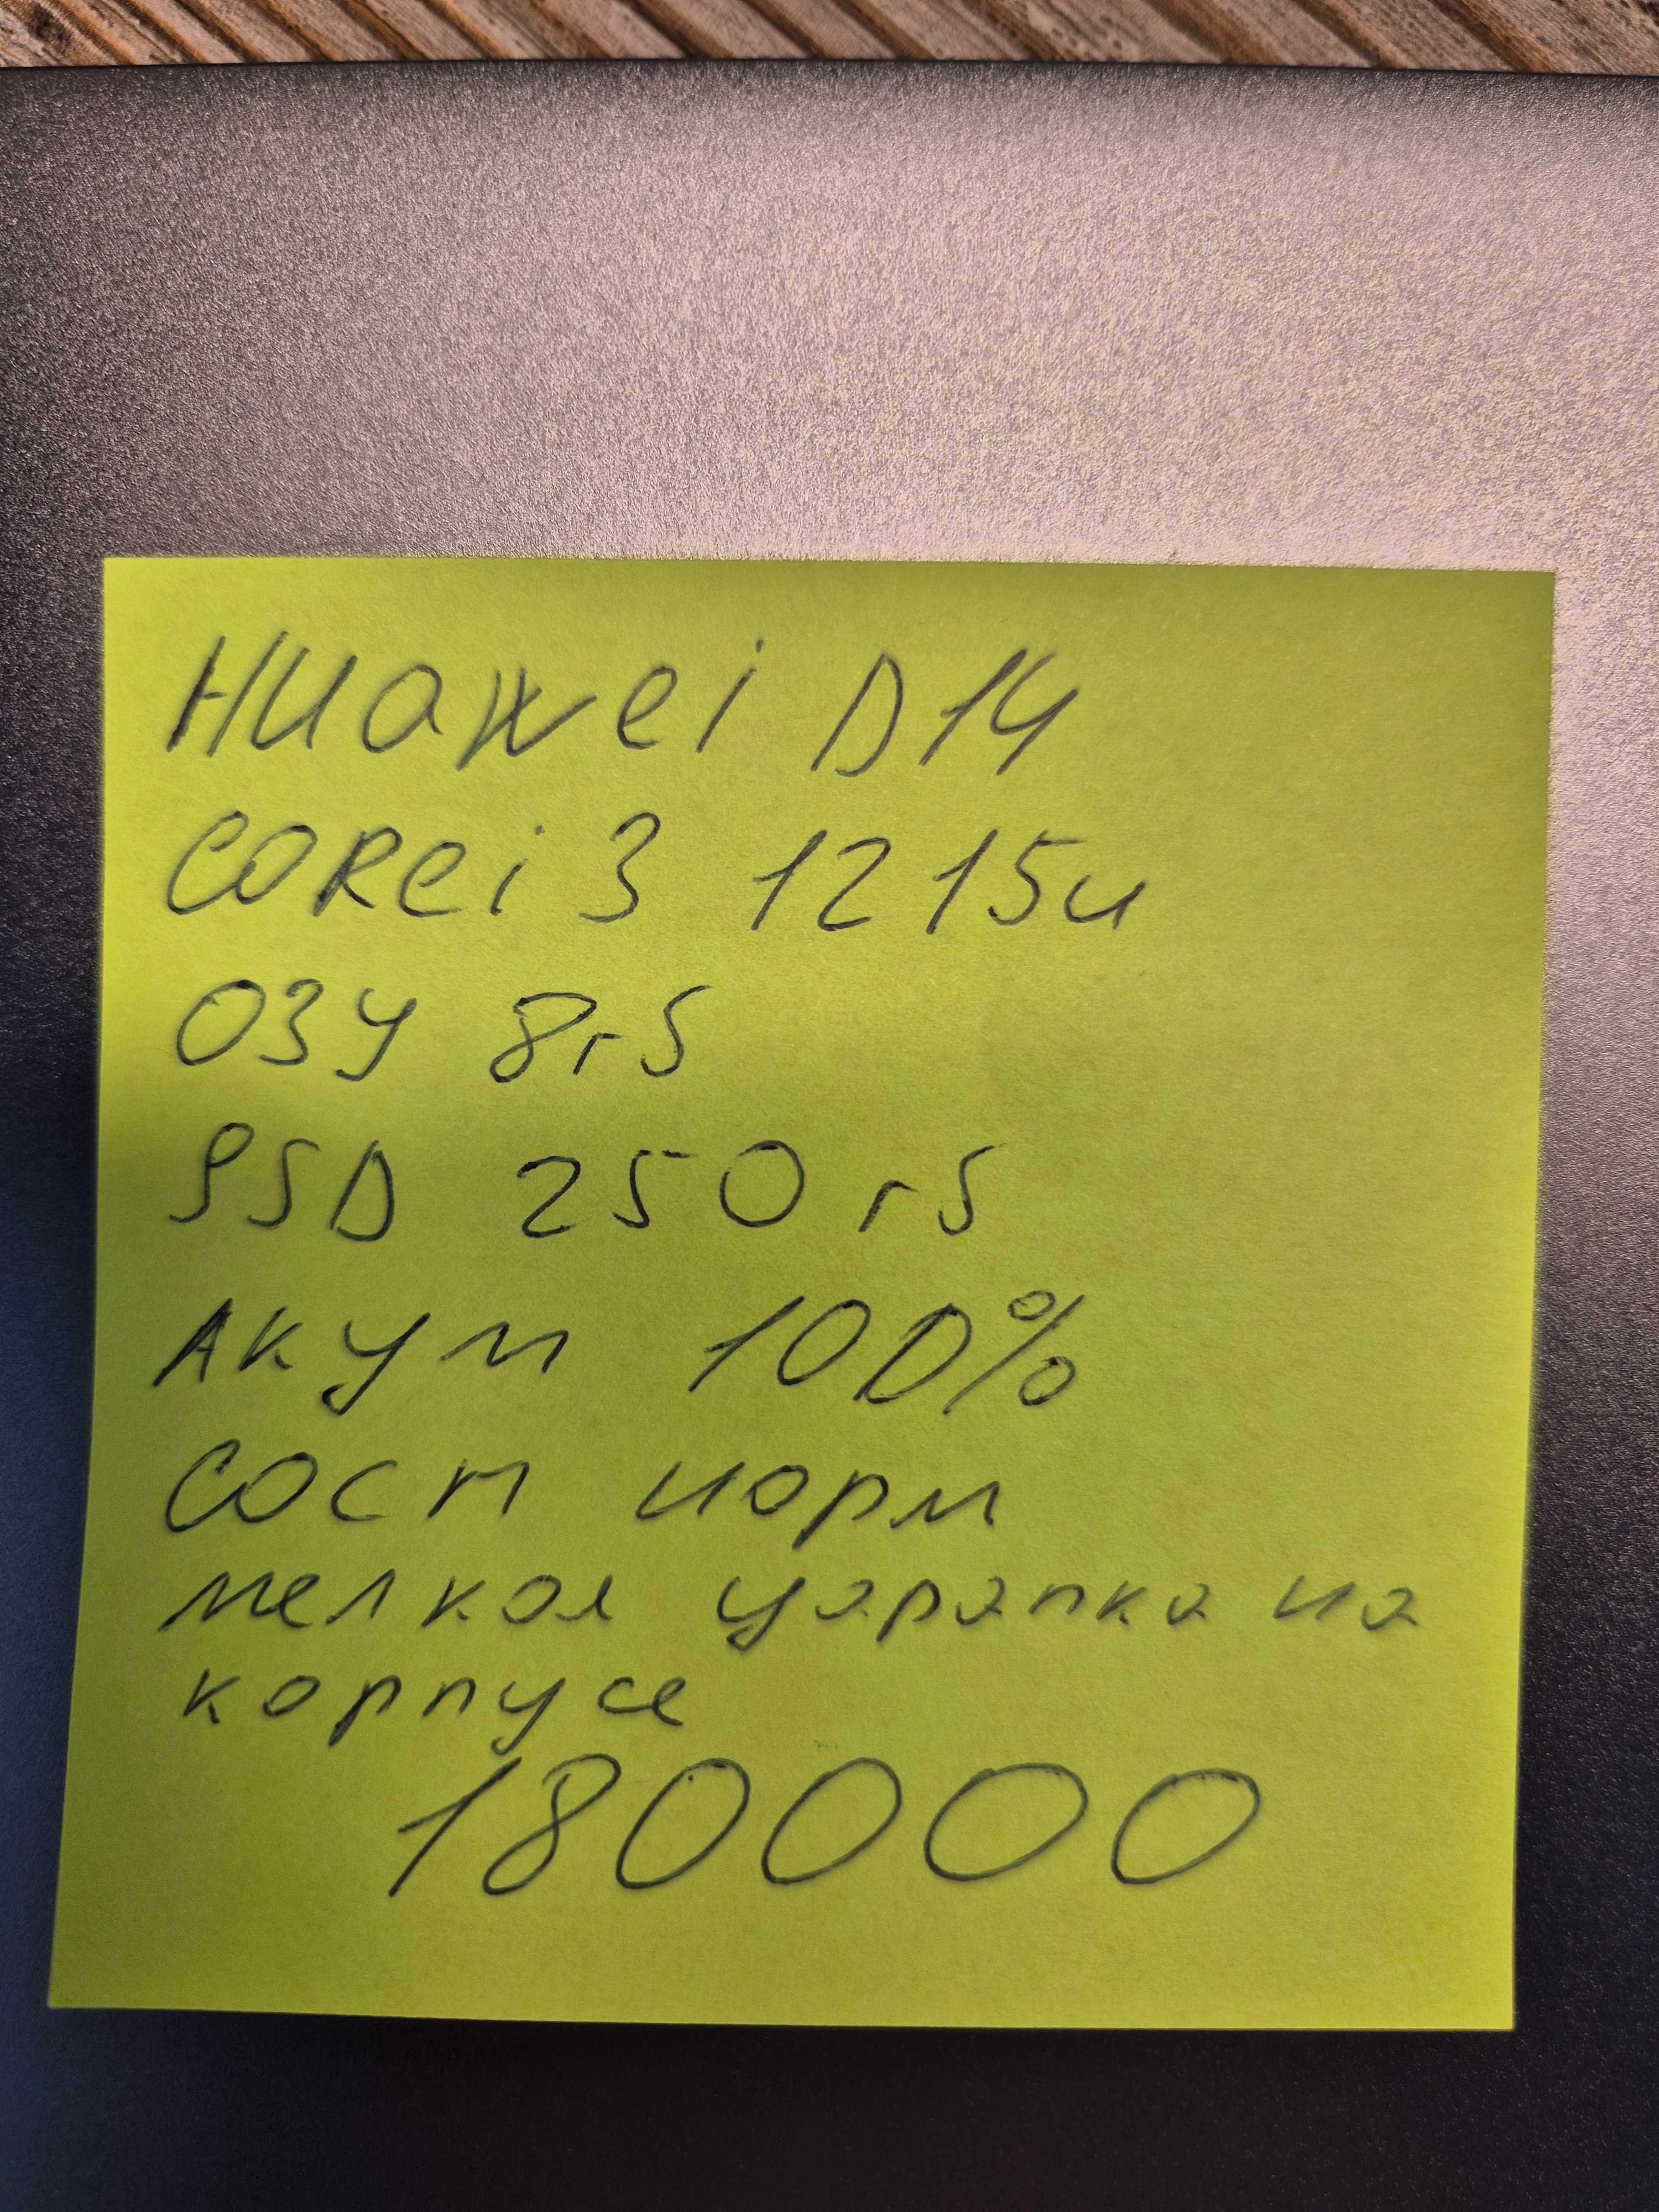 Huawei D14
Corei3 1215u
ОЗУ 8гб
SSD 250гб
Акум 100%
Сост норм
мелкая царапка на
корпусе
180000